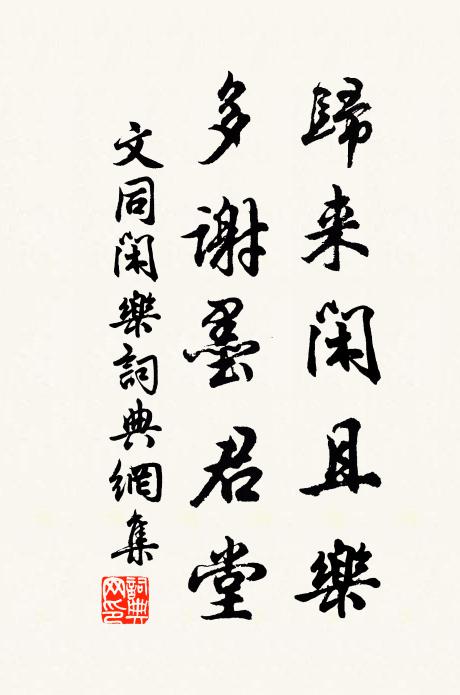 歸来閑且樂
多謝墨君堂
文同閑樂詞典網集
詞典
网印